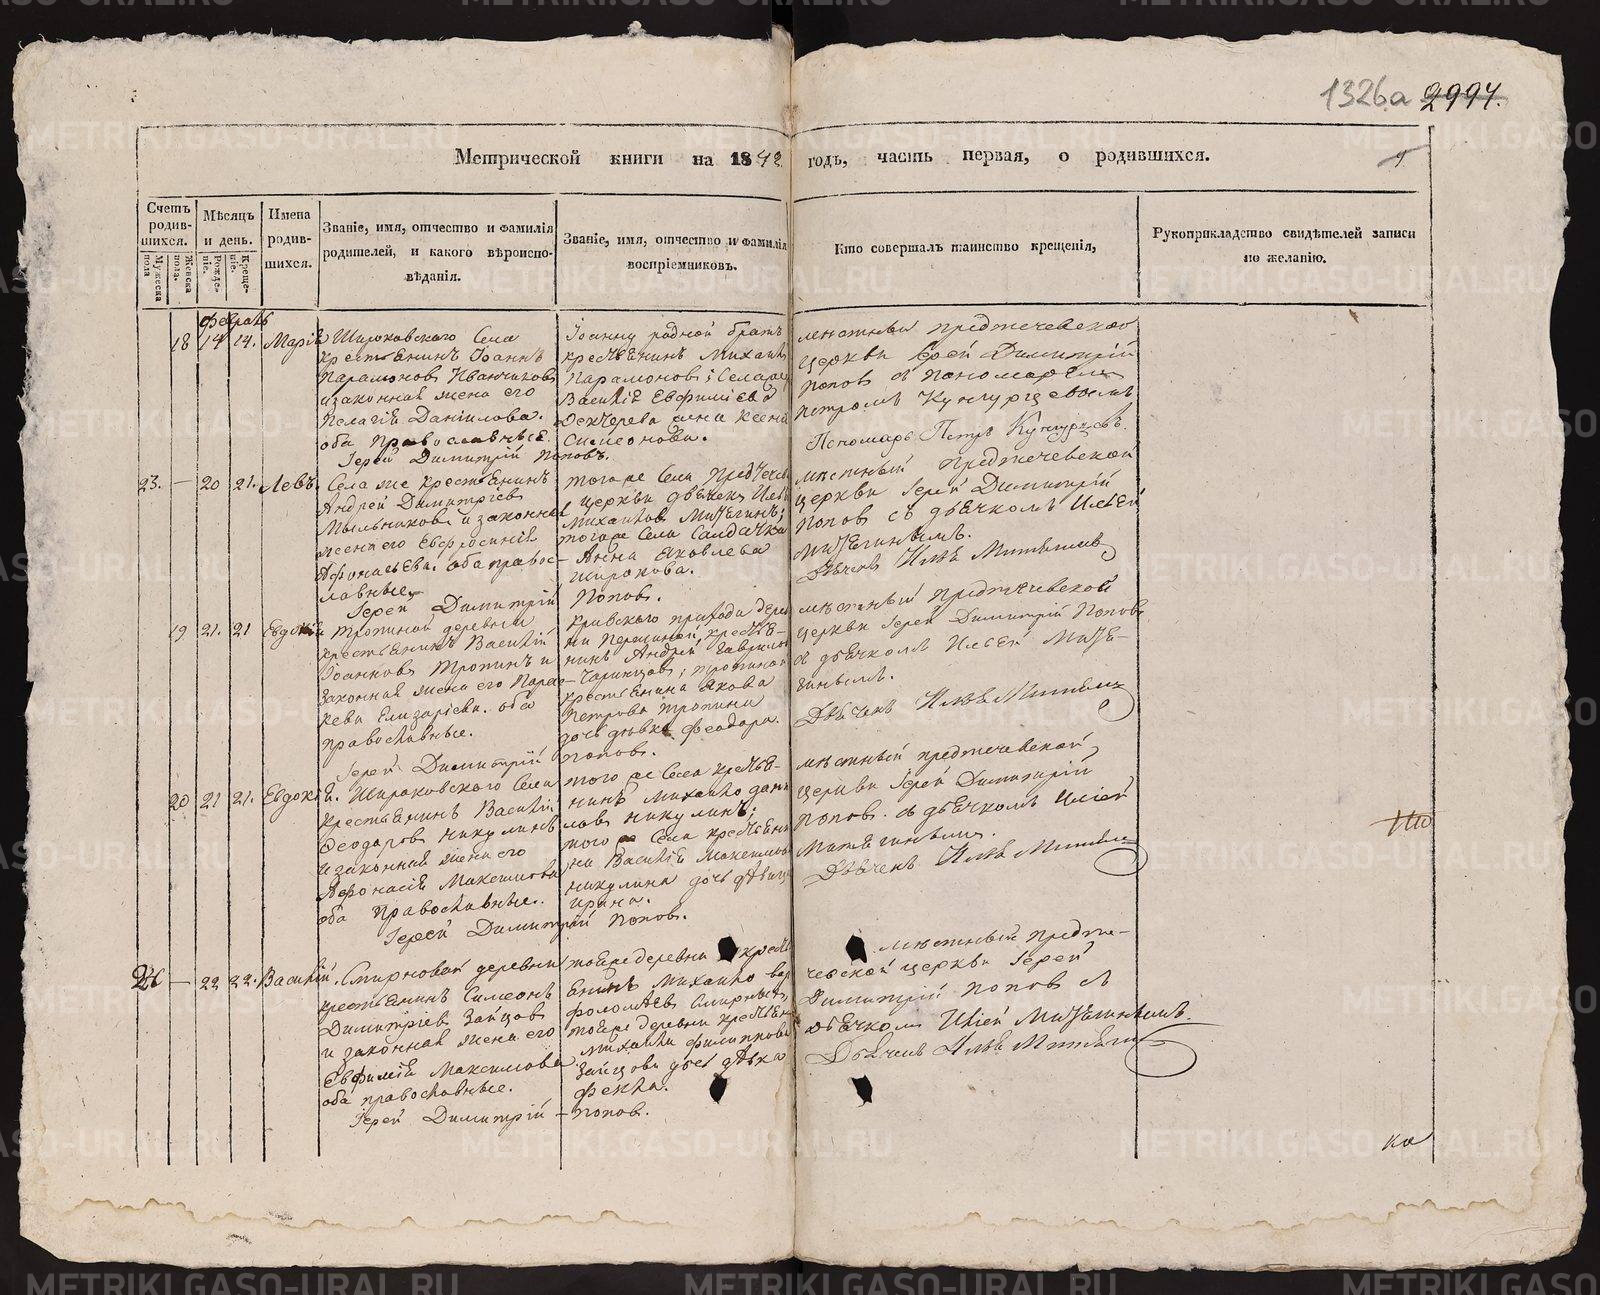 1326а 2994.
Метрической книги на 1842 годъ, часть первая, о родившихся.
9
Счетъ родившихся.
Мужеска пола
Женска пола.
Мѣсяцъ и день.
Рожденіе.
Крещеніе.
Имена родившихся.
Званіе, имя, отчество и фамилія родителей, и какого вѣроисповѣданія.
Званіе, имя, отчество и фамилія воспріемниковъ.
Кто совершалъ таинство крещенія,
Рукоприкладство свидѣтелей записи по желанію.
февраль
18 14 14. Маріѣ
Широковскаго Села
крестьянинъ Іоаннъ
Парамоновъ Иванчиковъ
и законная жена его
Пелагія Даніилова.
оба православные.
Іерей Димитрій Поповъ.
Іоанну родной братъ
крестьянинъ Михаилъ
Парамоновъ; Села
Василія Евфиміева
жена Ксенія
Симеонова.
мѣстный предтечевской
церкви Іерей Димитрій
Поповъ съ пономаремъ
Петромъ Кунгурцевымъ
Пономарь Петръ Кунгурцевъ.
23. — 20 21. Левъ.
Села же крестьянинъ
Андрей Димитріевъ
Мыльниковъ и законная
жена его Евфросинія
Афонасьева. оба православные.
Іерей Димитрій Поповъ.
того же Села Предтечев
церкви дьячекъ Илья
Михаиловъ Митегинъ;
того же Села Солдачка
Анна Яковлева
Широкова.
мѣстный предтечевской
церкви Іерей Димитрій
Поповъ съ дьячкомъ Ильей
Митегинымъ.
Дьячекъ Илья Митегинъ
19 21. 21 Евдокія
Тропиной деревни
крестьянинъ Василій
Іоанновъ Тропинъ и
законная жена его Параскева
Елизаріева. оба
православные.
Іерей Димитрій Поповъ.
прихода дерев
ни крестья-
нинъ Андрей Гаврилов
Тропиной
крестьянина Якова
Петрова Тропина
дочь дѣвка Феодора.
мѣстный предтечевской
церкви Іерей Димитрій Поповъ
съ дьячкомъ Ильей Мите-
гинымъ.
Дьячекъ Илья Митегинъ
20 21 21. Евдокія.
Широковскаго Села
крестьянинъ Василій
Ѳеодоровъ Никулинъ
и законная жена его
Афонасія Максимова
оба православные.
Іерей Димитрій Поповъ.
того же Села крестья-
нинъ Михайло Дани
ловъ Никулинъ;
того же Села крестьяни
на Василія Максимова
Никулина дочь дѣвица
Ирина.
мѣстный предтечевской
церкви Іерей Димитрій
Поповъ. съ дьячкомъ Ильей
Митегинымъ.
Дьячекъ Илья Митегинъ
24 — 22 22. Василій.
Смирновой деревни
крестьянинъ Симеонъ
Димитріевъ Зайцовъ
и законная жена его
Евфимія Максимова
оба православные.
Іерей Димитрій Поповъ.
той же деревни крестья
нинъ Михайло Вар
фоломѣевъ Смирныхъ,
той же деревни крестьян
Михаила Филиппова
Зайцова дочь дѣвка
Фекла.
мѣстный предте-
чевской церкви Іерей
Димитрій Поповъ съ
дьячкомъ Ильей Митегинымъ.
Дьячекъ Илья Митегинъ
METRIKI.GASO-URAL.RU